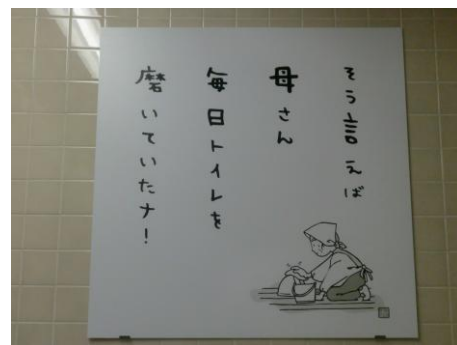 そう言えば
母さん
毎日トイレを
磨いていたナ！